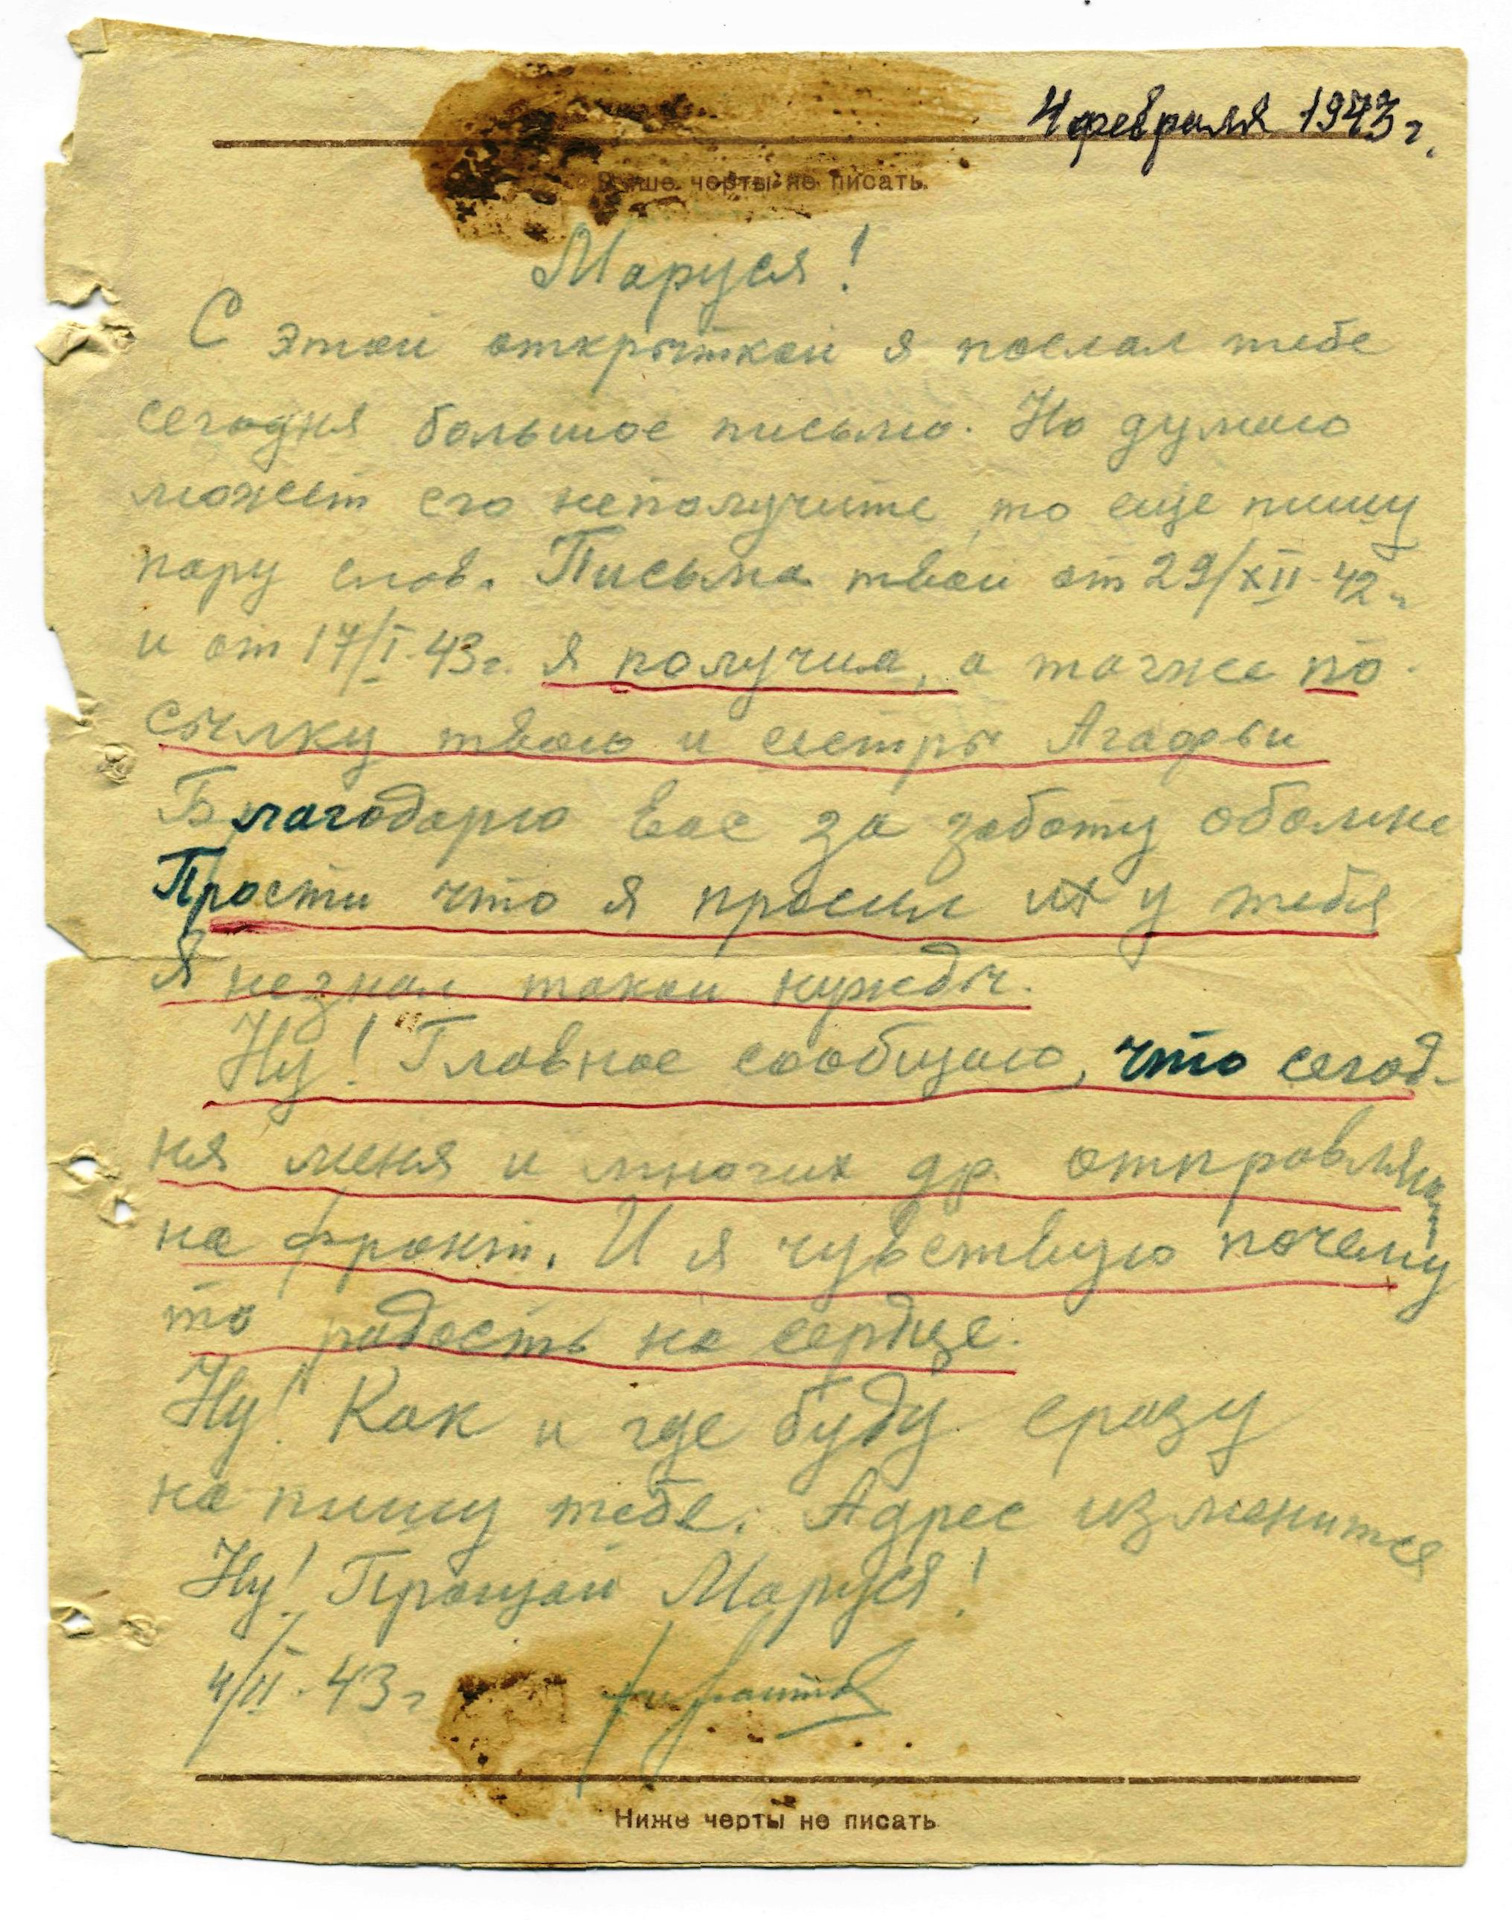 4 февраля 1943 г.
Выше черты не писать
Маруся!
С этой открыткой я послал тебе
сегодня большое письмо. Но думаю
может его неполучите, то еще пишу
пару слов. Письма твои от 29/XII-42 г.
и от 17/I-43 г. я получил, а также по-
сылку твою и сестры Агафьи
Благодарю Вас за заботу обомне
Прости что я просил их у тебя
Я незнал такой нужды.
Ну! Главное сообщаю, что сегод-
ня меня и многих др. отправляют
на фронт. И я чувствую почему
то радость на сердце.
Ну! Как и где буду сразу
на пишу тебе. Адрес изменится
Ну! Прощай Маруся!
4/II-43 г
Ниже черты не писать